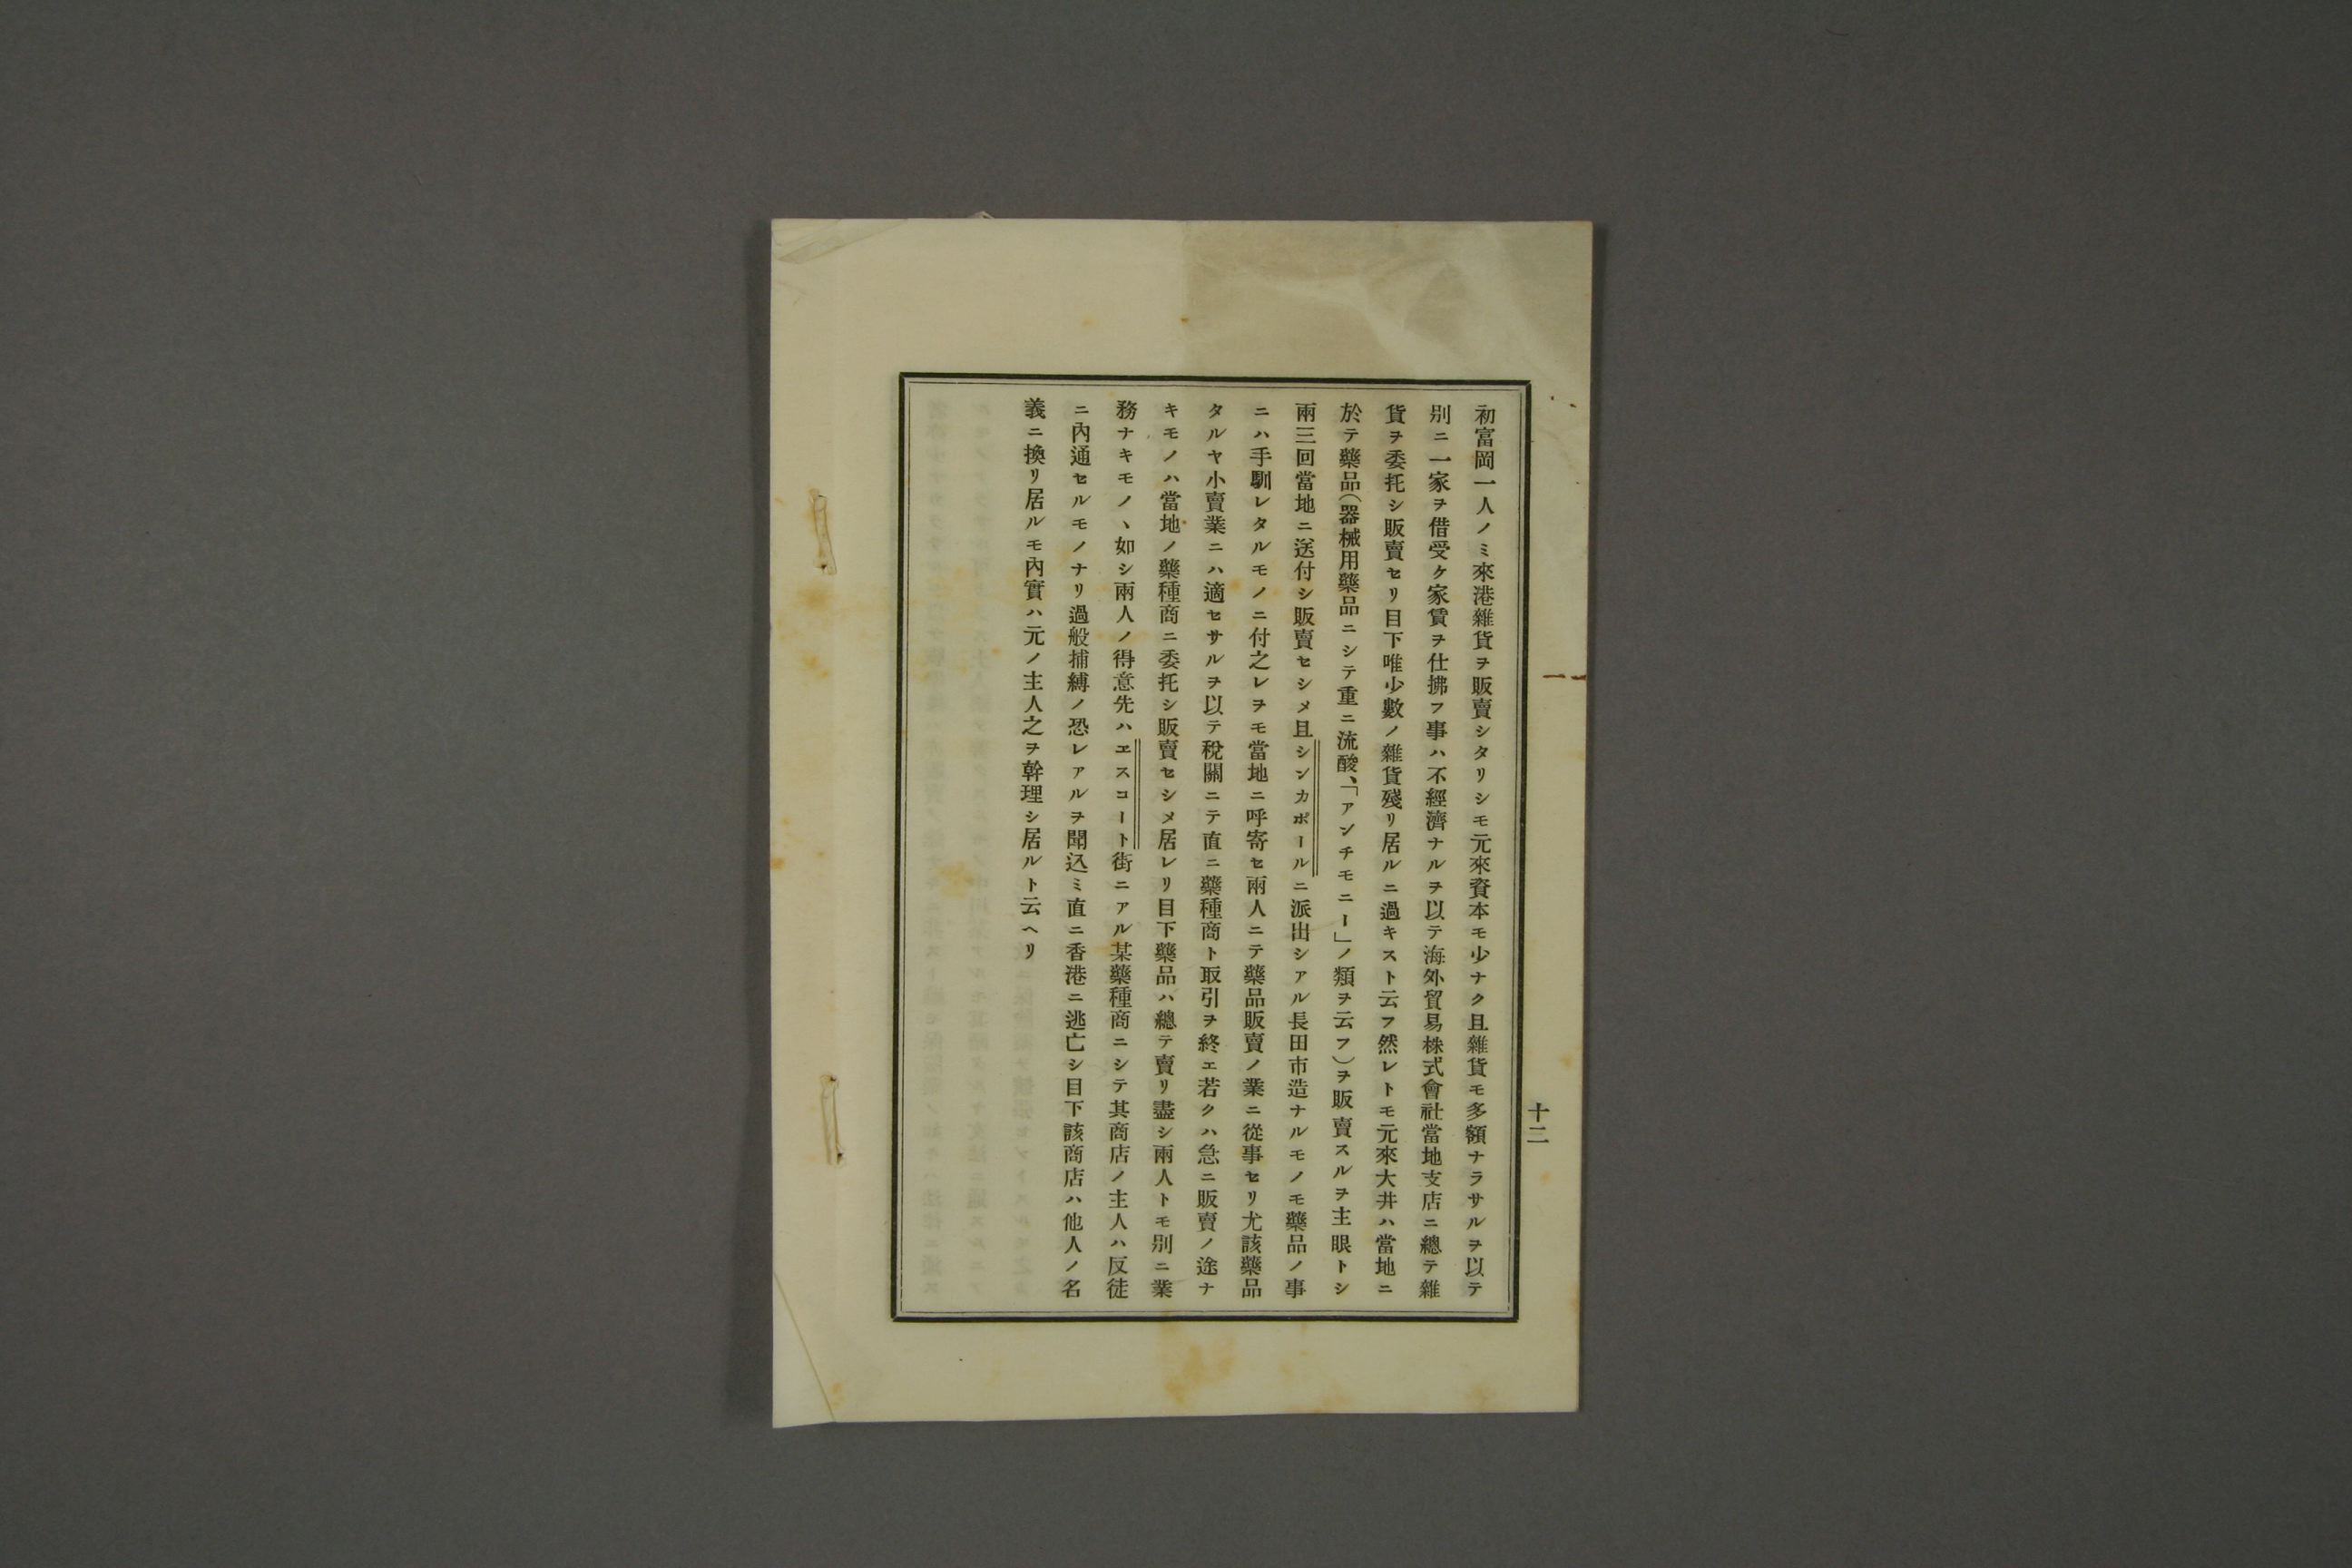 初富岡一人ノミ來港雜貨ヲ販賣シタリシモ元來資本モ少ナク且雜貨モ多額ナラサルヲ以テ
別ニ一家ヲ借受ケ家賃ヲ仕拂フ事ハ不經濟ナルヲ以テ海外貿易株式會社當地支店ニ總テ雜
貨ヲ委托シ販賣セリ目下唯少數ノ雜貨殘リ居ルニ過キスト云フ然レトモ元來大井ハ當地ニ
於テ藥品(器械用藥品ニシテ重ニ流酸、「アンチモニー」ノ類ヲ云フ)ヲ販賣スルヲ主眼トシ
兩三回當地ニ送付シ販賣セシメ且シンカポールニ派出シアル長田市造ナルモノモ藥品ノ事
ニハ手馴レタルモノニ付之レヲモ當地ニ呼寄セ兩人ニテ藥品販賣ノ業ニ從事セリ尤該藥品
タルヤ小賣業ニハ適セサルヲ以テ稅關ニテ直ニ藥種商ト取引ヲ終エ若クハ急ニ販賣ノ途ナ
キモノハ當地ノ藥種商ニ委托シ販賣セシメ居レリ目下藥品ハ總テ賣リ盡シ兩人トモ別ニ業
務ナキモノヽ如シ兩人ノ得意先ハヱスコート街ニアル某藥種商ニシテ其商店ノ主人ハ反徒
ニ內通セルモノナリ過般捕縛ノ恐レアルヲ聞込ミ直ニ香港ニ逃亡シ目下該商店ハ他人ノ名
義ニ換リ居ルモ內實ハ元ノ主人之ヲ幹理シ居ルト云ヘリ
十二